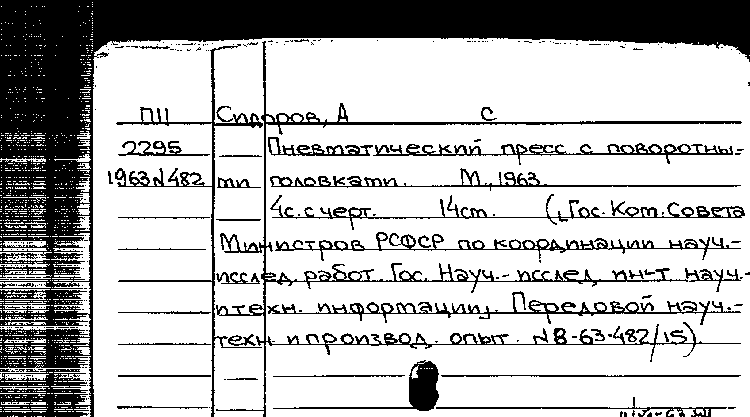 П11 Сидоров, А С
2295 Пневматический пресс с поворотны-
1963 N482 ми головками. М., 1963.
4с. с черт. 14см. („Гос. Ком. Совета
Министров РСФСР по координации науч.-
исслед. работ. Гос. Науч.-исслед. ин-т науч.-
и техн. информации„. Передовой науч.-
техн. и производ. опыт. N 8-63-482/15).